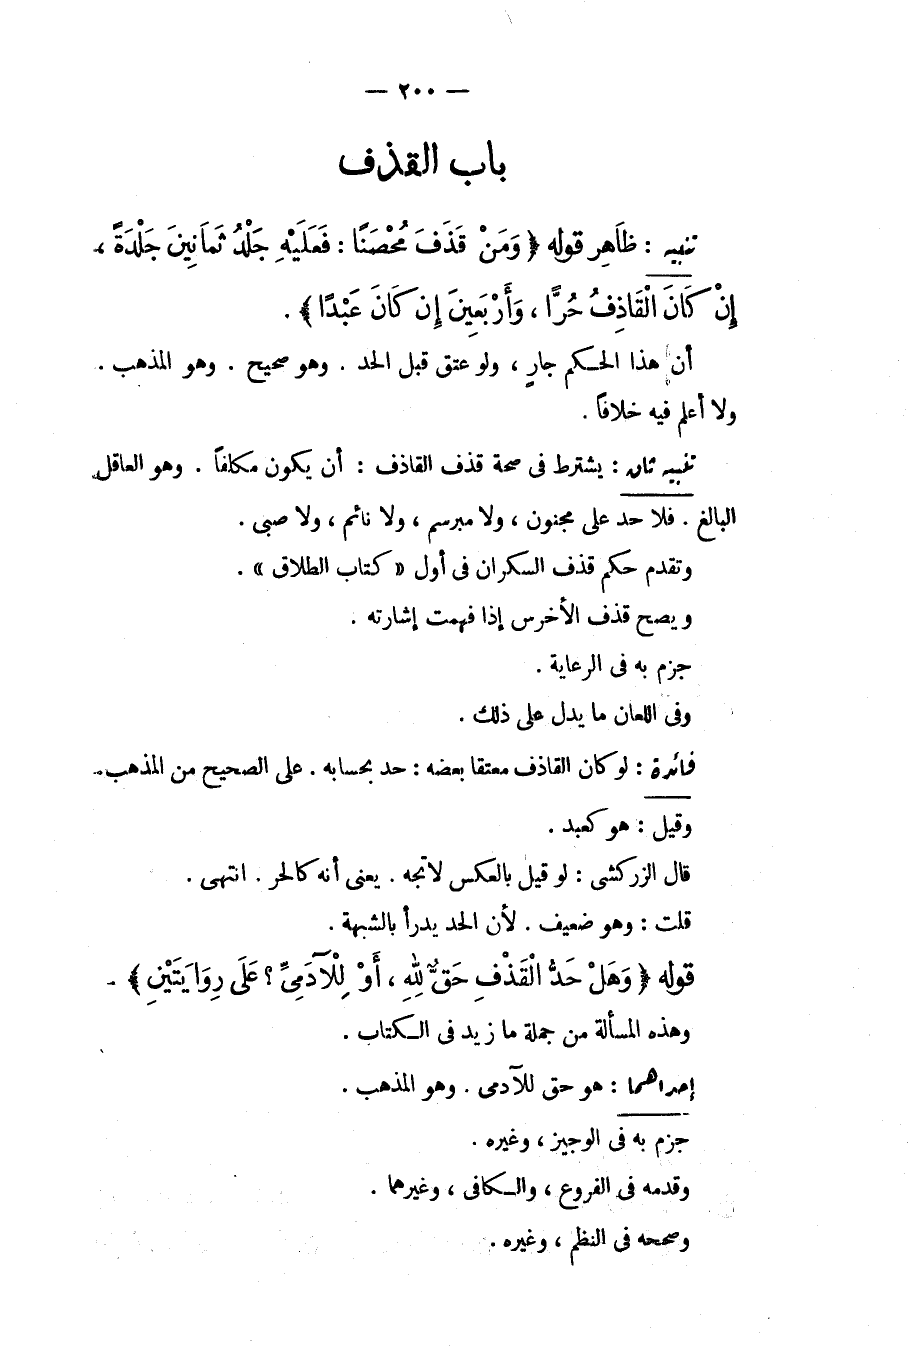 — ٢٠٠ —
باب القذف
تنبيه : ظَاهِر قوله ﴿ وَمَنْ قَذَفَ مُحْصَنًا : فَعَلَيْهِ جَلْدُ ثَمَانِينَ جَلْدَةً ،
إِنْ كَانَ الْقَاذِفُ حُرًّا ، وَأَرْبَعِينَ إِن كَانَ عَبْدًا ﴾ .
أن هذا الحكم جارٍ ، ولو عتق قبل الحد . وهو صحيح . وهو المذهب .
ولا أعلم فيه خلافاً .
تنبيه ثان : يشترط فى صحة قذف القاذف : أن يكون مكلفاً . وهو العاقل
البالغ . فلا حد على مجنون ، ولا مبرسم ، ولا نائم ، ولا صبى .
وتقدم حكم قذف السكران فى أول « كتاب الطلاق » .
ويصح قذف الأخرس إذا فهمت إشارته .
جزم به فى الرعاية .
وفى اللعان ما يدل على ذلك .
فائدة : لو كان القاذف معتقا بعضه : حد بحسابه . على الصحيح من المذهب .
وقيل : هو كعبد .
قال الزركشى : لو قيل بالعكس لاتجه . يعنى أنه كالحر . انتهى .
قلت : وهو ضعيف . لأن الحد يدرأ بالشبهة .
قوله ﴿ وَهَلْ حَدُّ الْقَذْفِ حَقٌّ لِلهِ ، أَوْ لِلْآدَمِىِّ ؟ عَلَى رِوَايَتَيْنِ ﴾ .
وهذه المسألة من جملة ما زيد فى الكتاب .
إحداهما : هو حق للآدمى . وهو المذهب .
جزم به فى الوجيز ، وغيره .
وقدمه فى الفروع ، والكافى ، وغيرهما .
وصححه فى النظم ، وغيره .